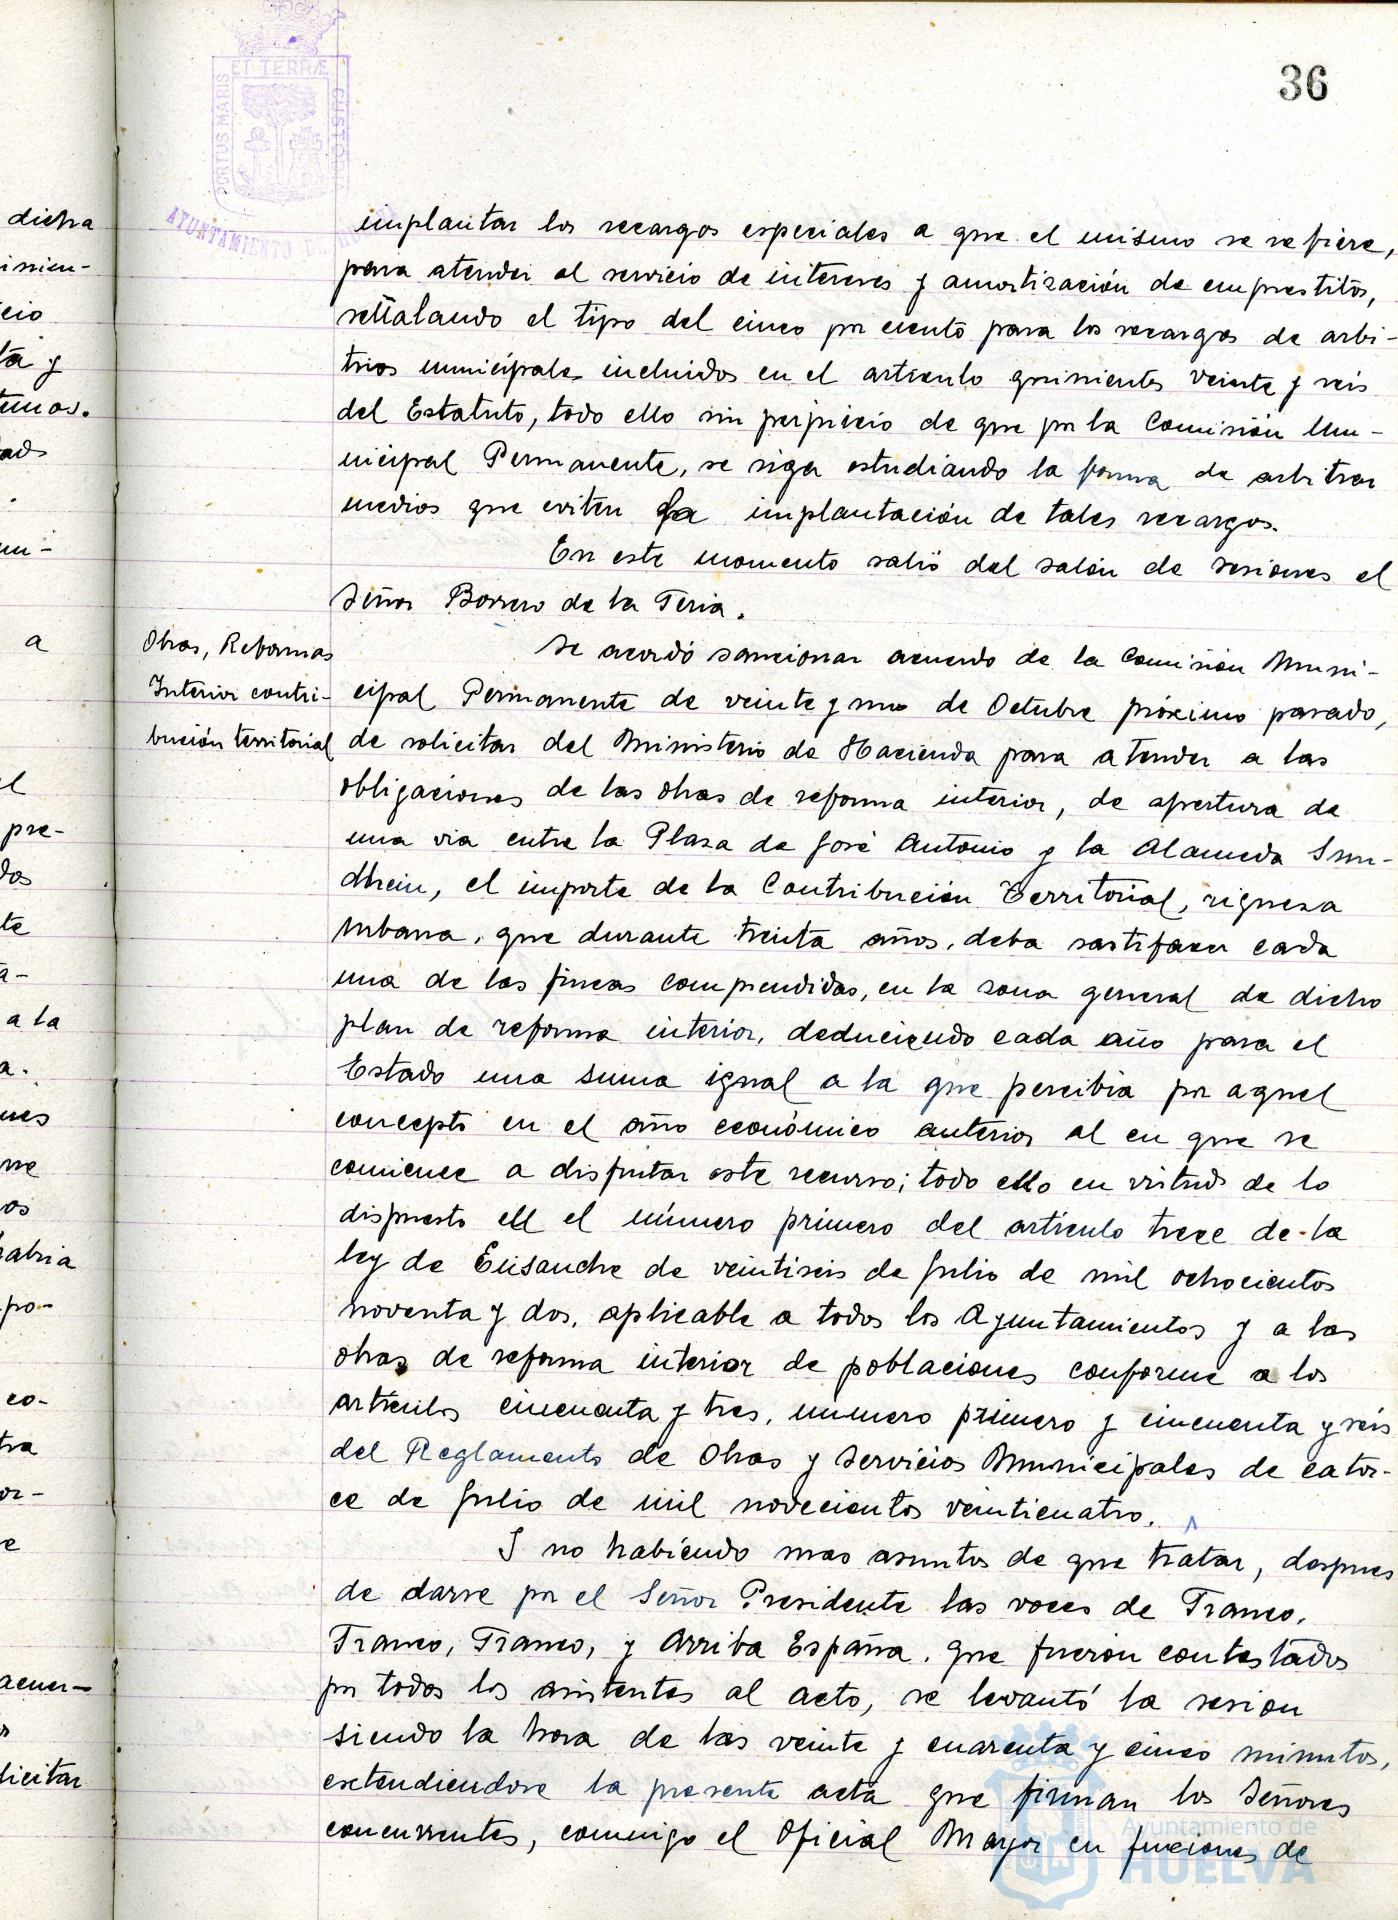 36
PORTUS MARIS ET TERRÆ CUSTOS
AYUNTAMIENTO DE HUELVA
implantar los recargos especiales a que el mismo se refiere,
para atender al servicio de intereses y amortización de emprestitos,
señalando el tipo del cinco por ciento para los recargos de arbi-
trios municipales incluidos en el artículo quinientos veinte y seis
del Estatuto, todo ello sin perjuicio de que por la Comisión Mu-
nicipal Permanente, se siga estudiando la forma de arbitrar
medios que eviten la implantación de tales recargos.
En este momento salió del salón de sesiones el
Señor Borrero de la Feria.
Obras, Reformas
Interior contri-
bución territorial
Se acordó sancionar acuerdo de la Comisión Muni-
cipal Permanente de veinte y uno de Octubre próximo pasado,
de solicitar del Ministerio de Hacienda para atender a las
obligaciones de las obras de reforma interior, de apertura de
una via entre la Plaza de José Antonio y la Alameda Sun-
dhein, el importe de la Contribución Territorial, riqueza
urbana, que durante treinta años, deba sastifacer cada
una de las fincas comprendidas, en la zona general de dicho
plan de reforma interior, deduciendo cada año para el
Estado una suma igual a la que percibia por aquel
concepto en el año económico anterior al en que se
comience a disfrutar este recurso; todo ello en virtud de lo
dispuesto en el número primero del artículo trece de la
ley de Ensanche de veintiseis de Julio de mil ochocientos
noventa y dos, aplicable a todos los Ayuntamientos y a las
obras de reforma interior de poblaciones conforme a los
artículos cincuenta y tres, numero primero y cincuenta y seis
del Reglamento de Obras y Servicios Municipales de cator-
ce de Julio de mil novecientos veinticuatro.
Y no habiendo mas asuntos de que tratar, despues
de darse por el Señor Presidente las voces de Franco,
Franco, Franco, y Arriba España, que fueron contestados
por todos los asistentes al acto, se levantó la sesion
siendo la hora de las veinte y cuarenta y cinco minutos,
extendiendose la presente acta que firman los Señores
concurrentes, conmigo el Oficial Mayor en funciones de
Ayuntamiento de
HUELVA
dicha
cio
ta y
a
el
pre-
dos
te
a la
a.
co-
tra
or-
e
acuer-
licitar